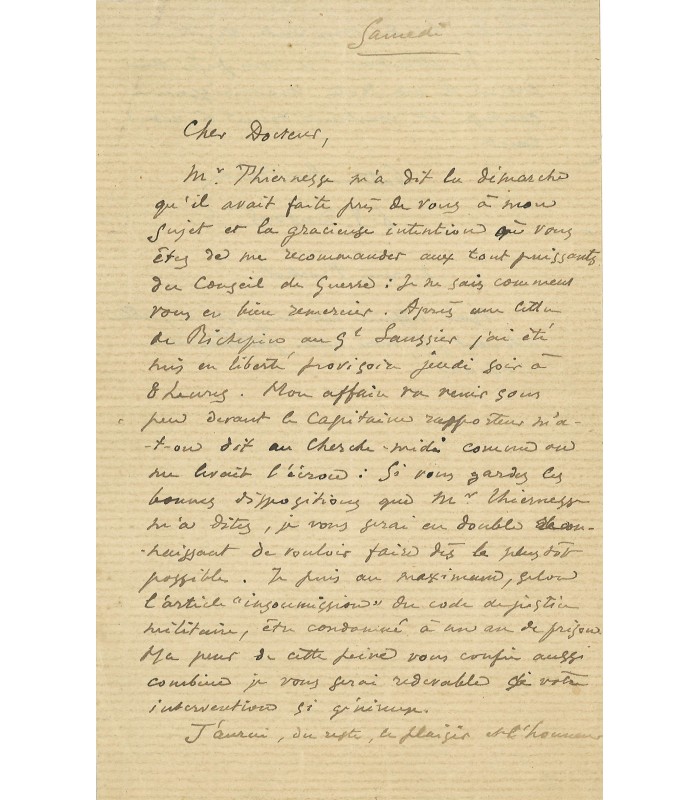 Samedi
Cher Docteur,
Mr. Thiernesse m'a dit la démarche
qu'il avait faite près de vous à mon
sujet et la gracieuse intention où vous
êtes de me recommander aux tout puissants
du Conseil de Guerre : Je ne sais comment
vous en bien remercier. Après une lettre
de Richepin au Gl Saussier j'ai été
mis en liberté provisoire jeudi soir à
8 heures. Mon affaire va venir sous
peu devant le Capitaine rapporteur m'a-
-t-on dit au Cherche-midi comme on
me levait l'écrou : Si vous gardez les
bonnes dispositions que Mr Thiernesse
m'a dites, je vous serai en double
-naissant de vouloir faire dès le plustôt
possible. Je puis au maximum, selon
l'article "insoumission" du code de justice
militaire, être condamné à un an de prison
Ma peur de cette peine vous confie aussi
combien je vous serai redevable de votre
intervention si généreuse.
J'aurai, du reste, le plaisir et l'honneur